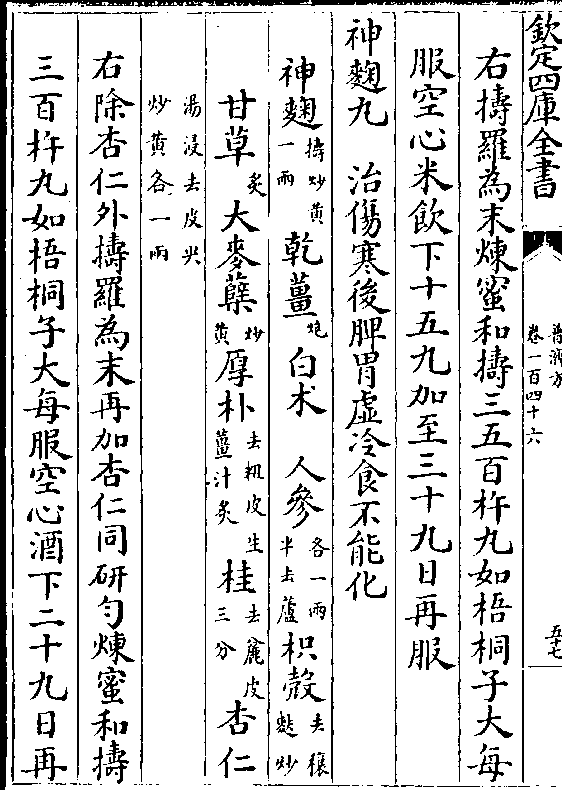 欽定四庫全書
普濟方
卷一百四十六
五十七
右擣羅為末煉蜜和擣三五百杵丸如梧桐子大每
服空心米飲下十五丸加至三十丸日再服
神麴丸 治傷寒後脾胃虛冷食不能化
神麴擣炒黄一兩 乾薑炮 白术 人參各一兩半去蘆 枳殼去穰麩炒
甘草炙 大麥蘖炒黄 厚朴去粗皮生薑汁炙 桂去麄皮三分 杏仁
湯浸去皮尖炒黄各一兩
右除杏仁外擣羅為末再加杏仁同研勻煉蜜和擣
三百杵丸如梧桐子大每服空心酒下二十丸日再